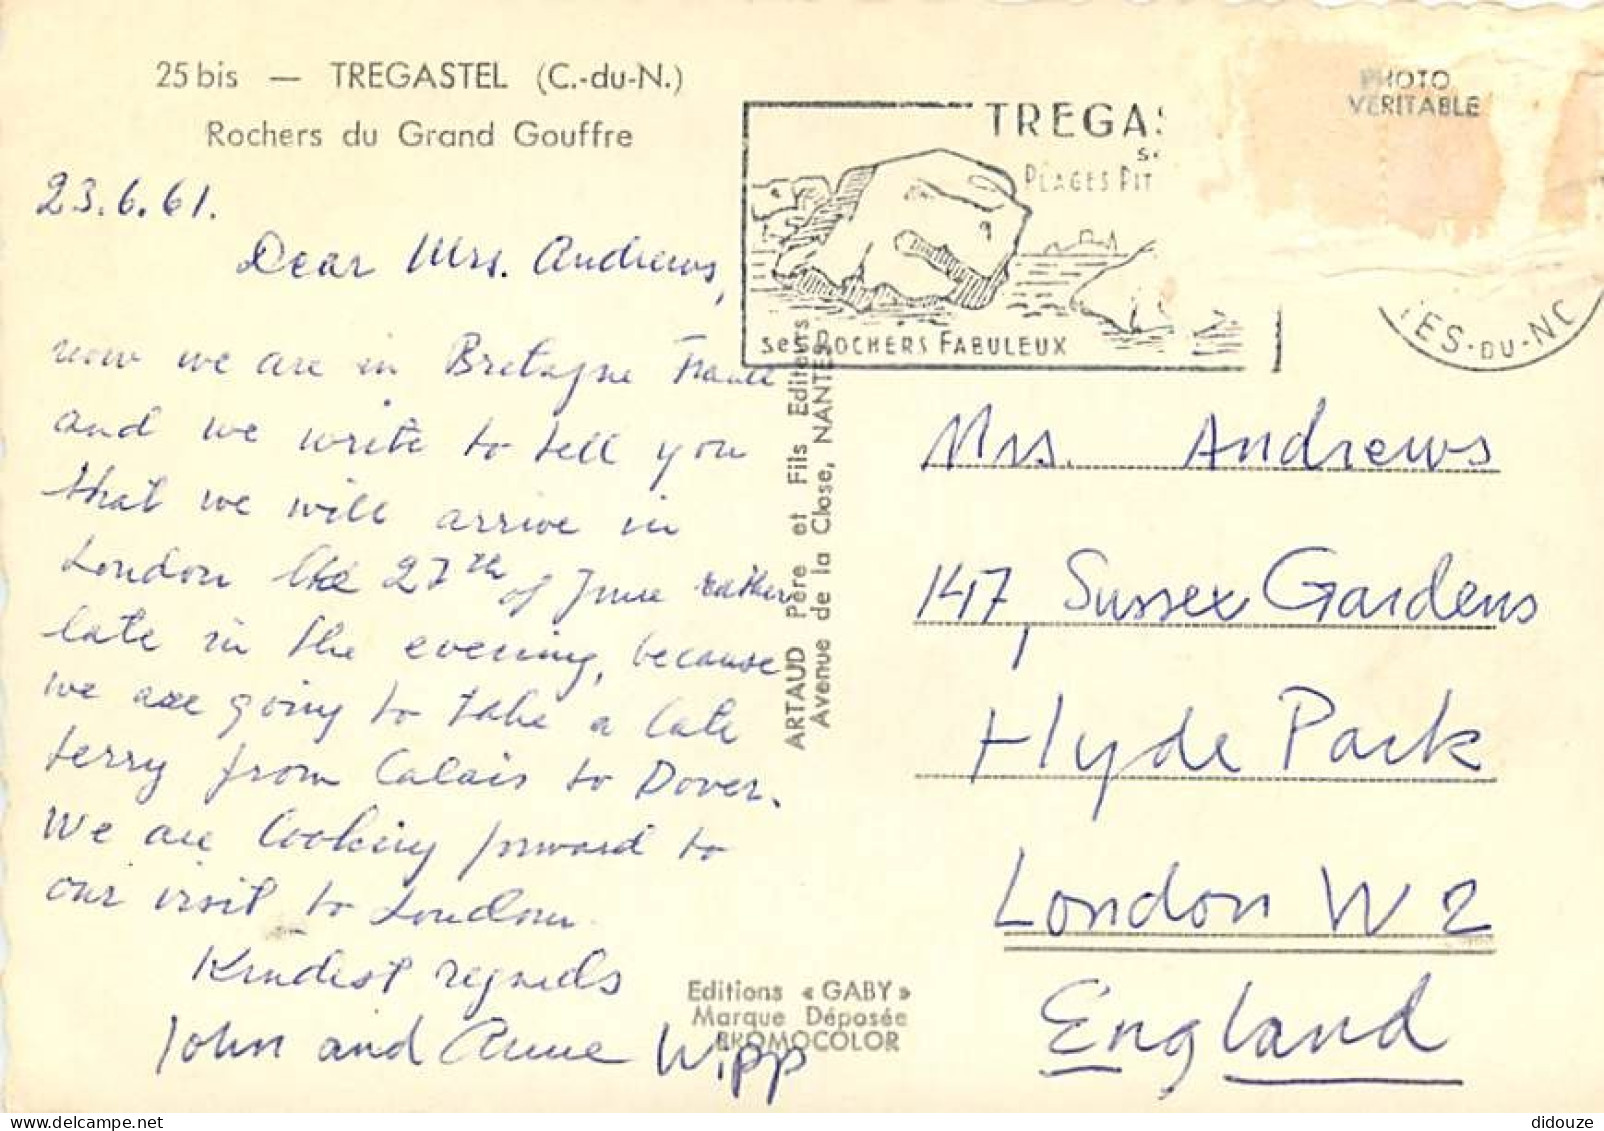 25 bis — TREGASTEL (C.-du-N.)
Rochers du Grand Gouffre
23.6.61.
Dear Mrs. Andrews,
now we are in Bretagne France
and we write to tell you
that we will arrive in
London the 27th of June rather
late in the evening, because
we are going to take a late
ferry from Calais to Dover.
We are looking forward to
our visit to London.
Kindest regards
John and Anne Wipp
ARTAUD Père et Fils Editeurs
Avenue de la Close, NANTES
Editions « GABY »
Marque Déposée
BROMOCOLOR
TREGAS
PLAGES PIT
ses ROCHERS FABULEUX
PHOTO
VERITABLE
TES-DU-NO
Mrs. Andrews
147, Sussex Gardens
Hyde Park
London W 2
England
didouze